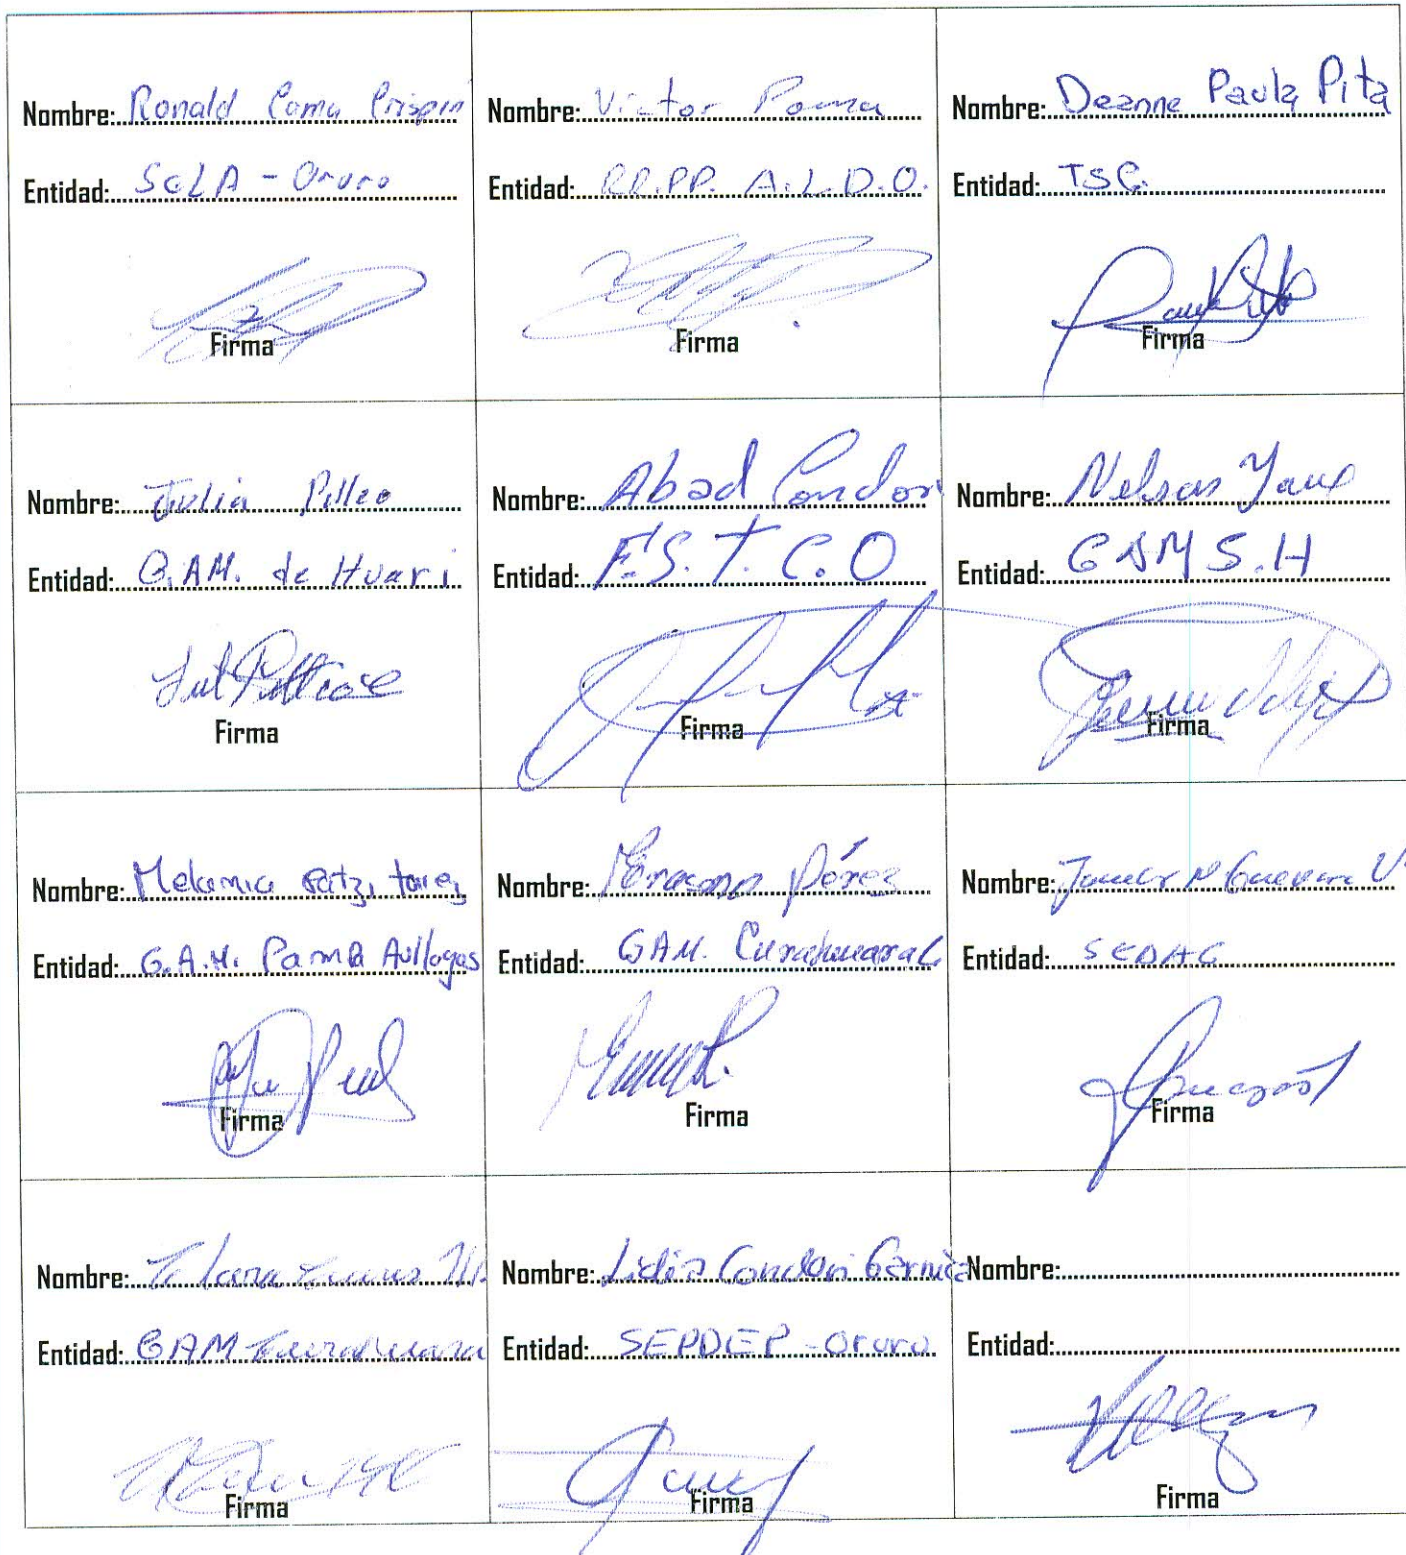 Nombre: Ronald Coma Crispin
Entidad: SeLA - Oruro
Firma
Nombre: Victor Poma
Entidad: RR.PP. A.L.D.O.
Firma
Nombre: Deanne Paula Pita
Entidad: TSC.
Firma
Nombre: Julia Pilleo
Entidad: G.AM. de Huari
Firma
Nombre: Abad Condori
Entidad: F.S.T.C.O
Firma
Nombre: Nelson
Entidad: GAM S.H
Firma
Nombre: Melania
Entidad: G.A.M. Pampa Aullagas
Firma
Nombre: Pérez
Entidad: GAM.
Firma
Nombre: Guevara V.
Entidad: SEDAG
Firma
Nombre:
Entidad: GAM
Firma
Nombre: Lidia Condori Garnica
Entidad: SEPDEP - Oruro
Firma
Nombre:
Entidad:
Firma